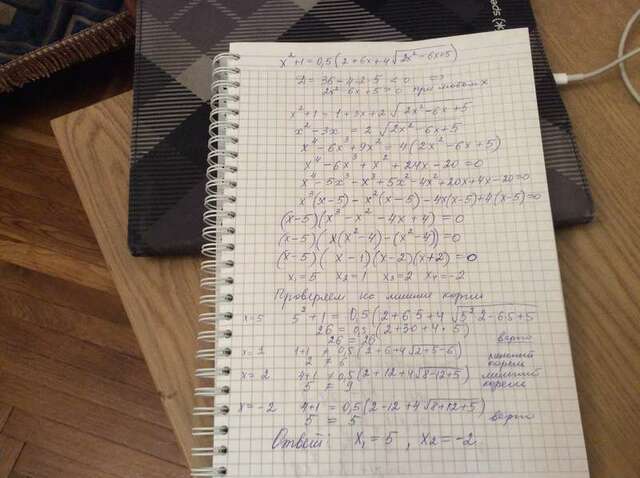 x² + 1 = 0,5(2 + 6x + 4√2x² - 6x + 5)
D = 36 - 4·2·5 < 0 ⇒
2x² - 6x + 5 > 0 при любом x
x² + 1 = 1 + 3x + 2√2x² - 6x + 5
x² - 3x = 2√2x² - 6x + 5
x⁴ - 6x³ + 9x² = 4(2x² - 6x + 5)
x⁴ - 6x³ + x² + 24x - 20 = 0
x⁴ - 5x³ - x³ + 5x² - 4x² + 20x + 4x - 20 = 0
x³(x-5) - x²(x-5) - 4x(x-5) + 4(x-5) = 0
(x-5)(x³ - x² - 4x + 4) = 0
(x-5)(x(x²-4) - (x²-4)) = 0
(x-5)(x-1)(x-2)(x+2) = 0
x₁ = 5 x₂ = 1 x₃ = 2 x₄ = -2
Проверяем на лишние корни
x = 5 5² + 1 = 0,5(2 + 6·5 + 4√5²·2 - 6·5 + 5
26 = 0,5(2 + 30 + 4·5)
26 = 26 верно
x = 1 1+1 ≠ 0,5(2 + 6 + 4√2+5-6) лишний
2 ≠ корень
x = 2 4+1 ≠ 0,5(2 + 12 + 4√8-12+5) лишний
5 ≠ 9 корень
x = -2 4+1 = 0,5(2 - 12 + 4√8+12+5)
5 = 5 верно
Ответ: x₁ = 5, x₂ = -2